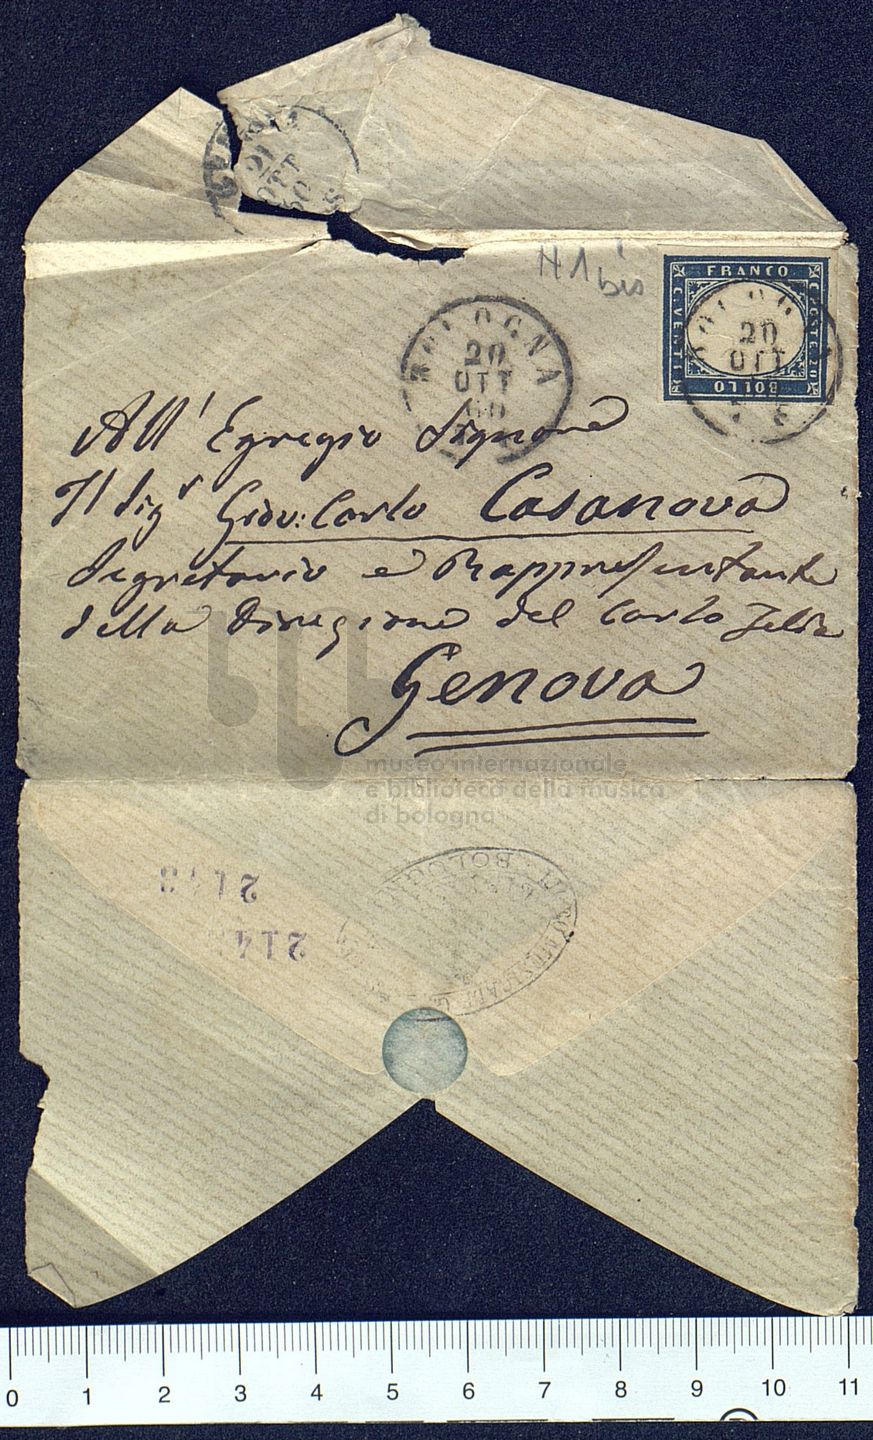 21
OTT
60
N 1 bis
FRANCO
C. POSTE 20
BOLLO
C. VENTI
BOLOGNA
20
OTT
60
BOLOGNA
20
OTT
All' Egregio Signore
Il Sigr Giov: Carlo Casanova
Segretario e Rappresentante
della Direzione del Carlo Felice
Genova
museo internazionale
e biblioteca della musica
di bologna
2143
214
LICEO MUSICALE
BOLOGNA
0 1 2 3 4 5 6 7 8 9 10 11